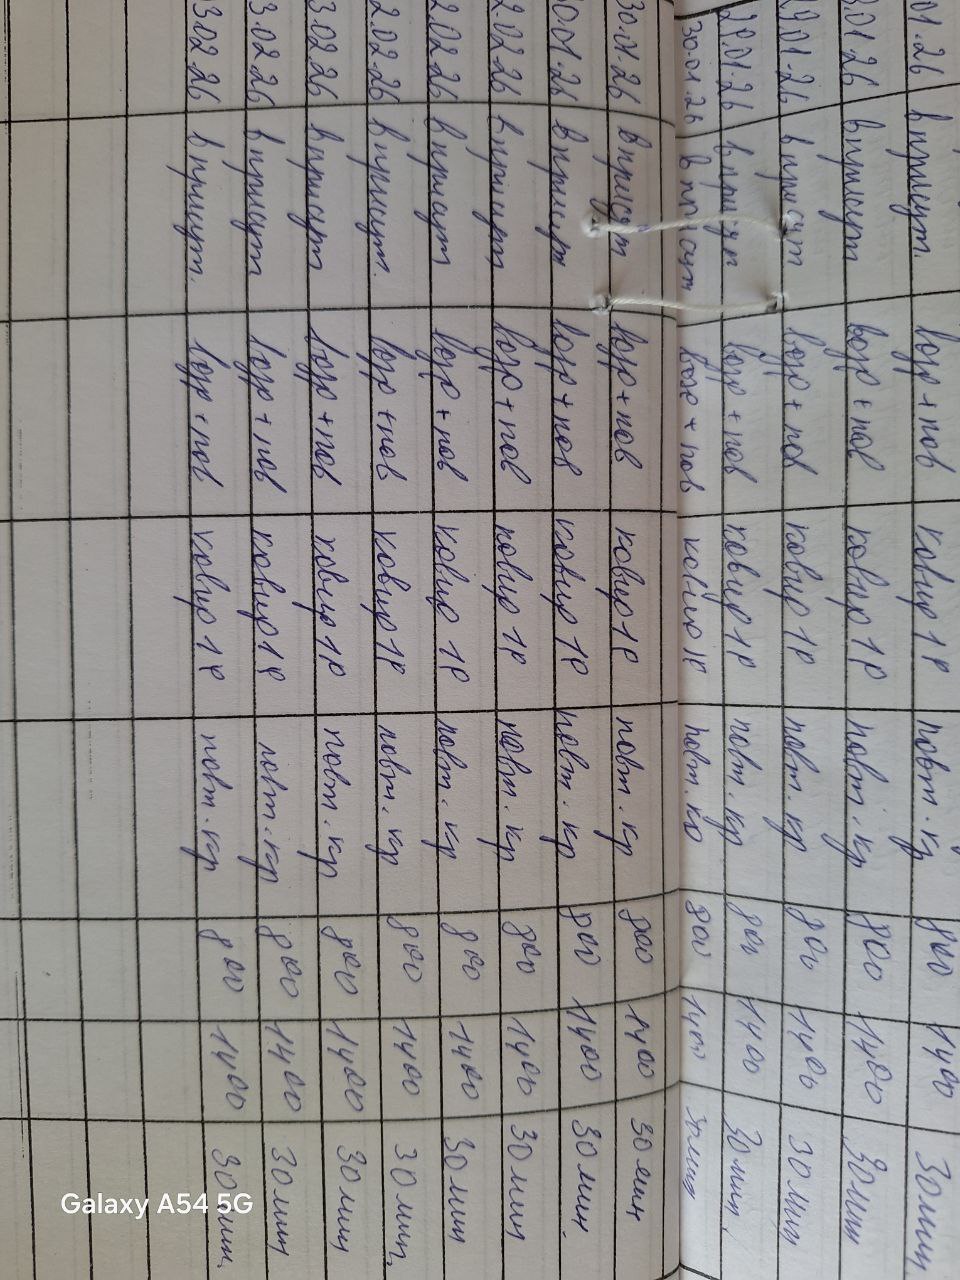 01.26 в присут. возд + пов ковир 1 р повт. кр 800 1400 30 мин.
01.26 в присут возд + пов ковир 1 р повт. кр 800 1400 30 мин
9.01.26 в присут возд + пов ковир 1 р повт. кр 800 1400 30 мин
29.01.26 в присут возд + пов ковир 1 р повт. кр 800 1400 30 мин.
30.01.26 в присут возд + пов ковир 1 р повт. кр 800 1400 30 мин
30.01.26 в присут возд + пов ковир 1 р повт. кр 800 1400 30 мин
30.01.26 в присут возд + пов ковир 1 р повт. кр 800 1400 30 мин.
2.02.26 в присут возд + пов ковир 1 р повт. кр 800 1400 30 мин
2.02.26 в присут возд + пов ковир 1 р повт. кр 800 1400 30 мин
2.02.26 в присут. возд + пов ковир 1 р повт. кр 800 1400 30 мин.
3.02.26 в присут возд + пов ковир 1 р повт. кр 800 1400 30 мин
3.02.26 в присут возд + пов ковир 1 р повт. кр 800 1400 30 мин
03.02.26 в присут. возд + пов ковир 1 р повт. кр 800 1400 30 мин.
Galaxy A54 5G